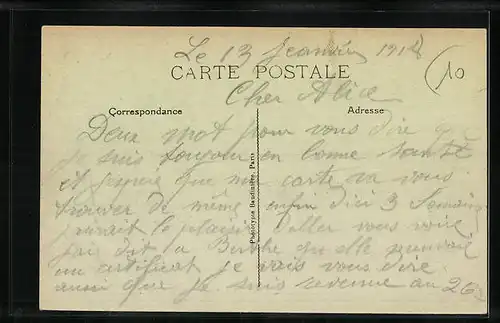 Le 13 Jeanvier 1918
10
CARTE POSTALE
Cher Alice
Correspondance
Adresse
Deux mot pour vous dire que
je suis toujour en bonne santé
et j'espere que ma carte va vous
trouver de même enfin d'ici 3 Semaine
j'aurait le plaisir d'aller vous voir
j'ai dit a Berthe qu'elle
un certificat je vais vous dire
aussi que je suis revenue au 262
Phototype Baudinière, Paris